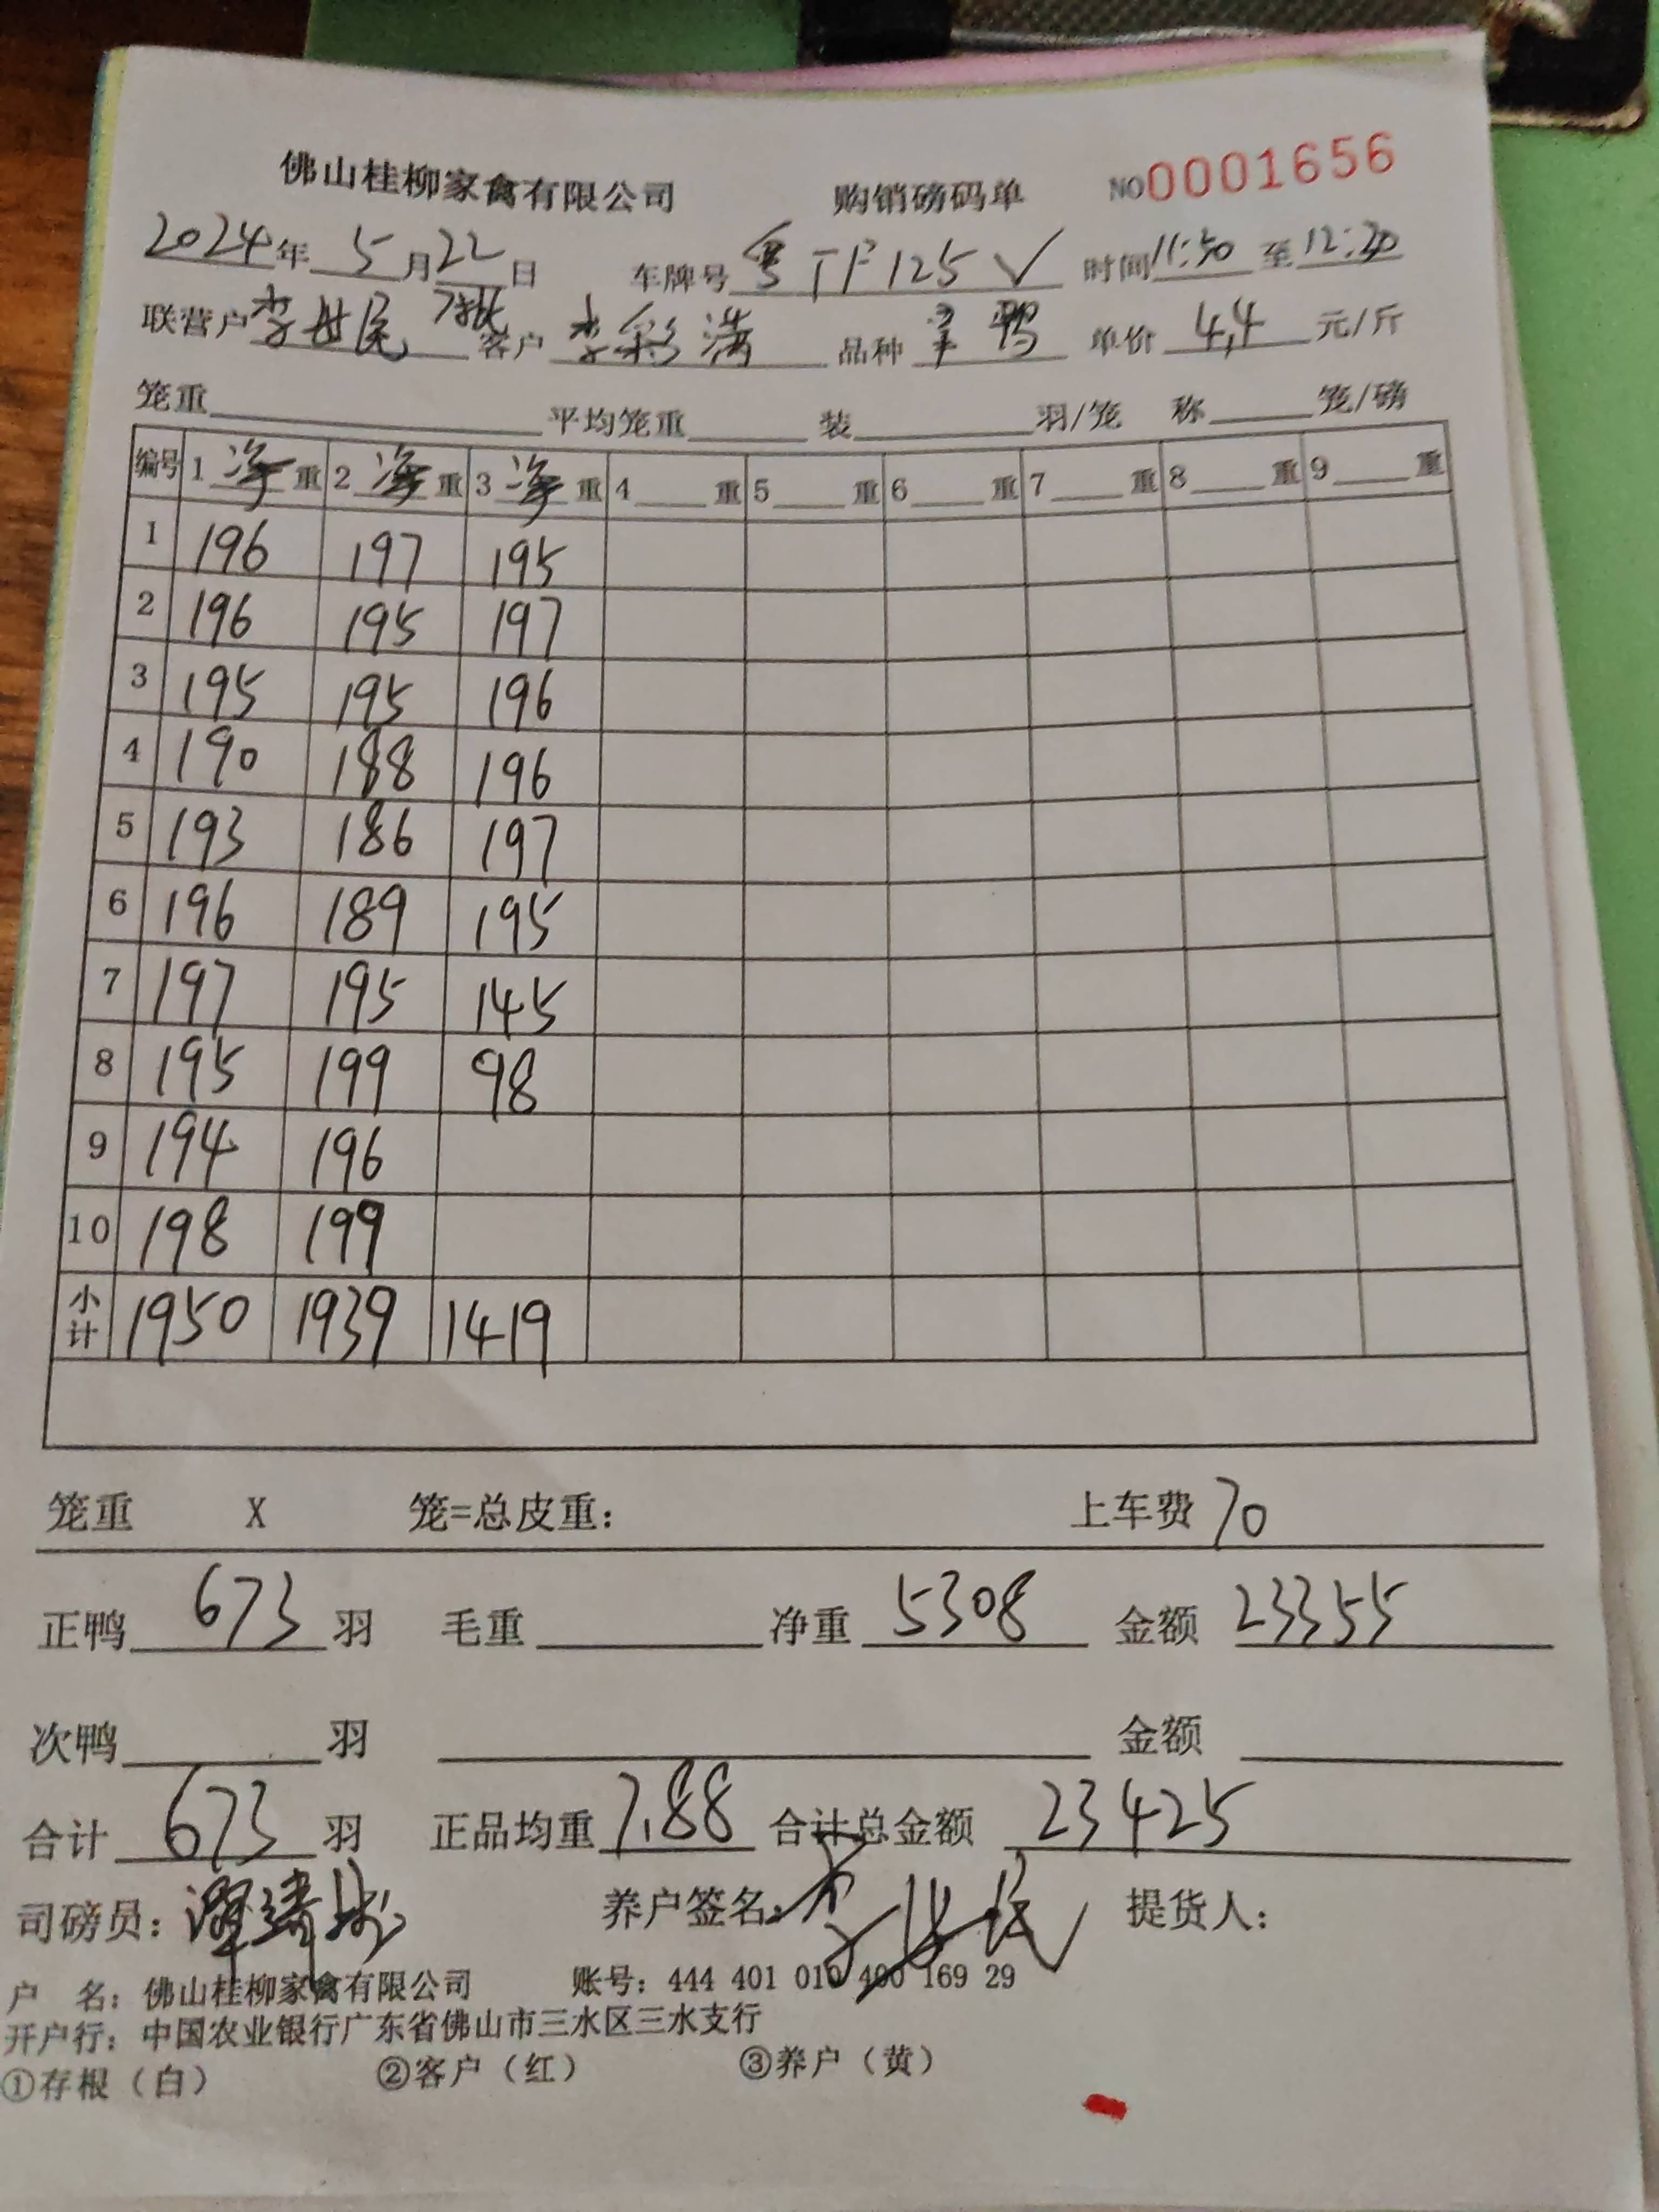 佛山桂柳家禽有限公司 购销磅码单 NO0001656
2024年 5月22日 车牌号 粤TF125V 时间11:50至12:20
联营户 李世民 客户 李彩满 品种 鸭 单价 4.4 元/斤
笼重 平均笼重 装 羽/笼 称 笼/磅
编号 1 净重 2 净重 3 净重 4 重 5 重 6 重 7 重 8 重 9 重
1 196 197 195
2 196 195 197
3 195 195 196
4 190 188 196
5 193 186 197
6 196 189 195
7 197 195 145
8 195 199 98
9 194 196
10 198 199
小计 1950 1939 1419
笼重 X 笼=总皮重: 上车费 70
正鸭 673 羽 毛重 净重 5308 金额 23355
次鸭 羽 金额
合计 673 羽 正品均重 7.88 合计总金额 23425
司磅员: 养户签名: 提货人:
户 名: 佛山桂柳家禽有限公司 账号: 444 401 010 400 169 29
开户行: 中国农业银行广东省佛山市三水区三水支行
①存根（白） ②客户（红） ③养户（黄）